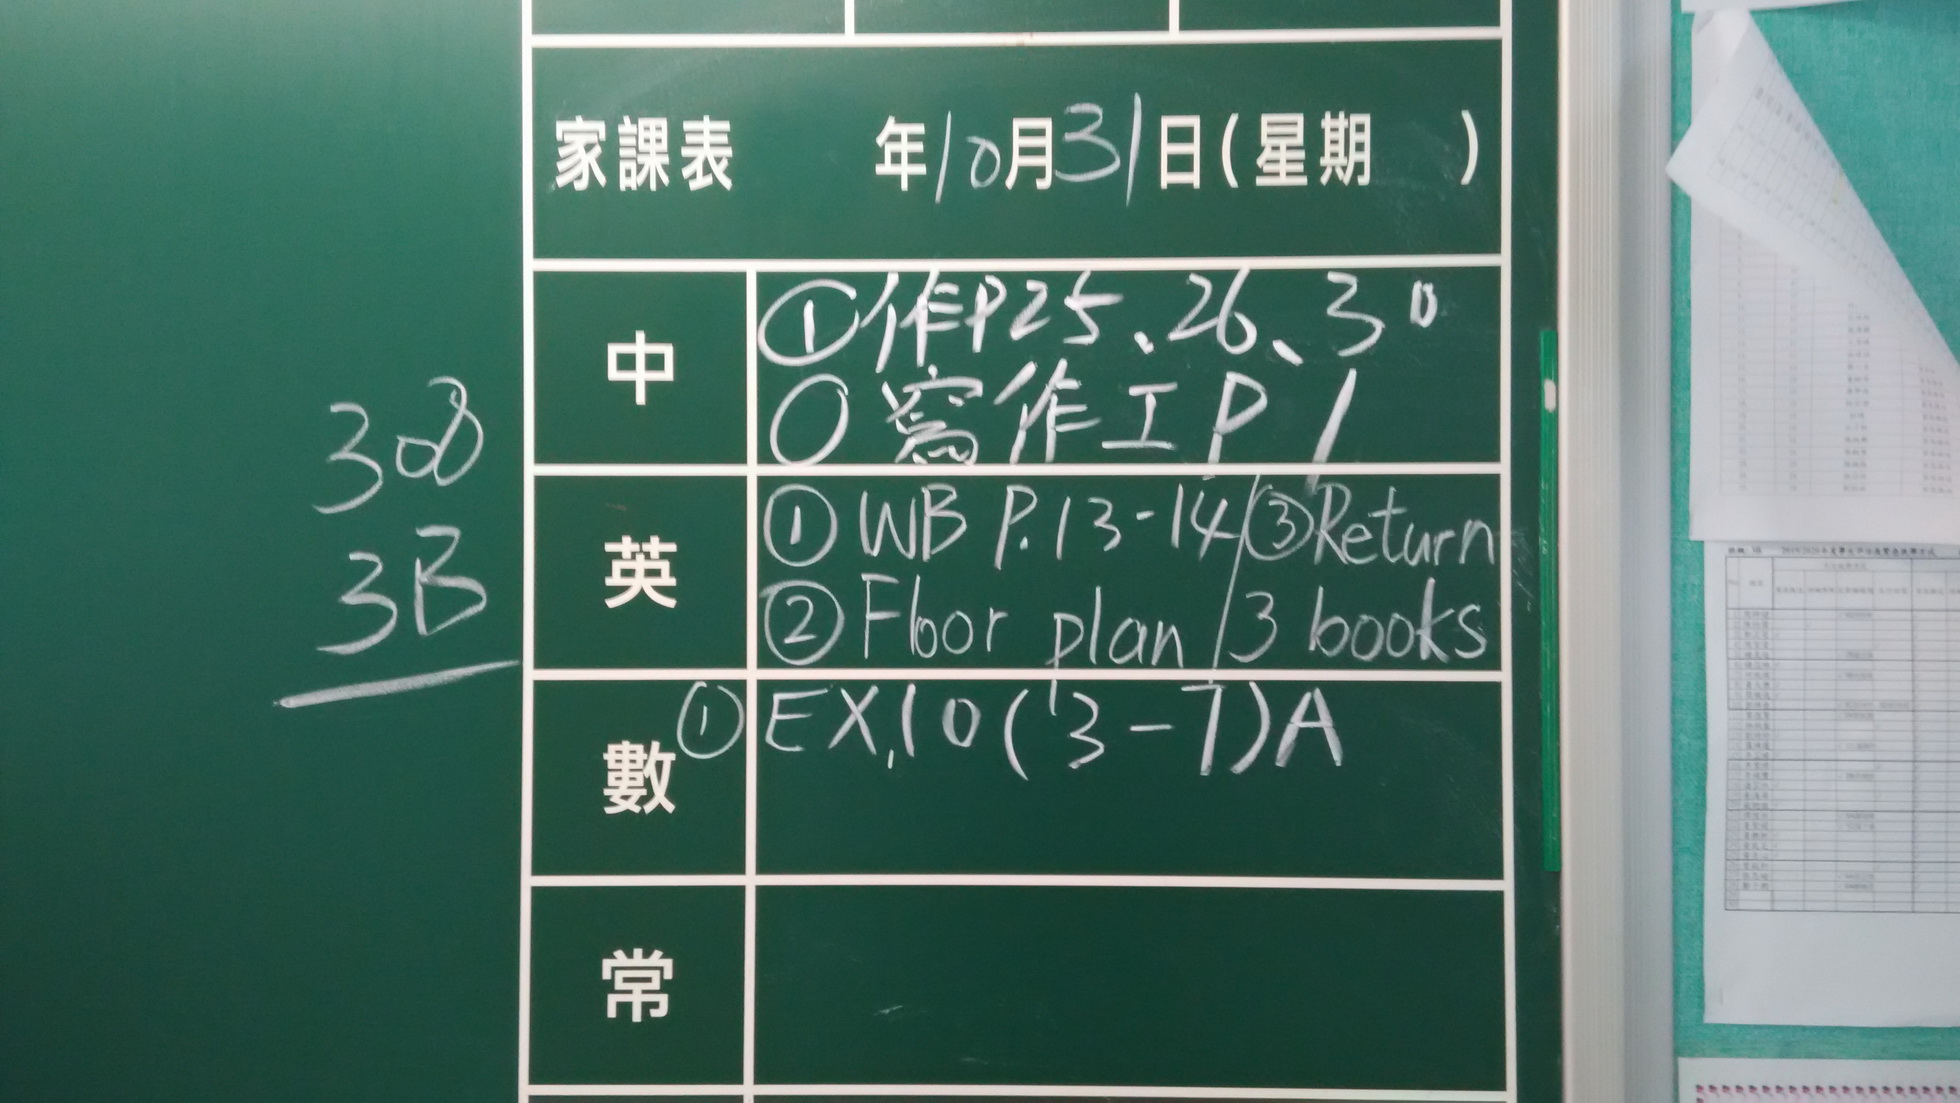 家課表 年10月31日(星期 )
中
①作P25、26、30
0 寫作工P1
英
① WB P.13-14/③Return
② Floor plan/3 books
數
① EX.10(3-7)A
常
308
3B